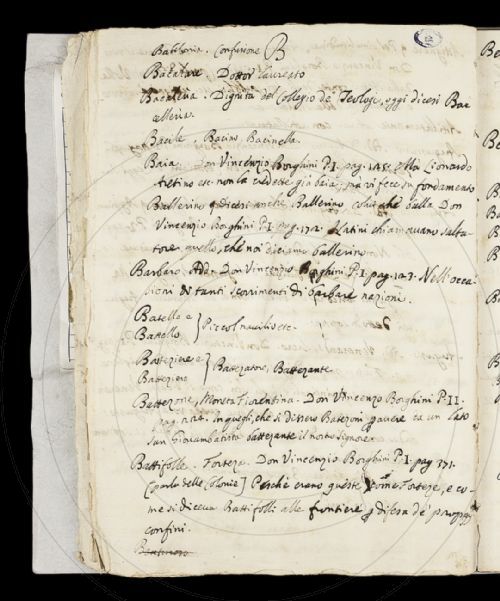 Babilonia. Confusione B
Bacalare. Dottor laureato
Bacaleria. Dignità del Collegio de' Teologi, oggi dicesi Bac
celleria.
Bacile, Bacino, Bacinella.
Baia, Don Vincenzio Borghini P. I. pag. Ma Lionardo
Aretino etc. non la credette già baia, ma vi fece su fondamento
Ballerino dicesi anche Ballerino colui che balla Don
Vincenzio Borghini P. I. pag. 172. Latini chiamavano salta
tore quello, che noi diciamo ballerino.
Barbaro Add. Don Vincenzio Borghini P. I. pag. 123. Nell'occa
sioni di tanti scorrimenti di barbare nazioni.
Batello e
Battello } Piccol navilio etc.
Batteziere e
Batteziero } Battezatore, Battezante
Battezone, Moneta Fiorentina. Don Vincenzo Borghini P. II.
pag. in quegli, che si dissero Batezoni avere da un lato
San Giovambatista battezante il nostro Signore.
Battifolle. Forteza. Don Vincenzio Borghini P. I. pag. 371.
[parla delle Colonie] Perchè erano queste come Forteze, e co
me si diceva Battifolli alle frontiere difesa de' proprj
confini.